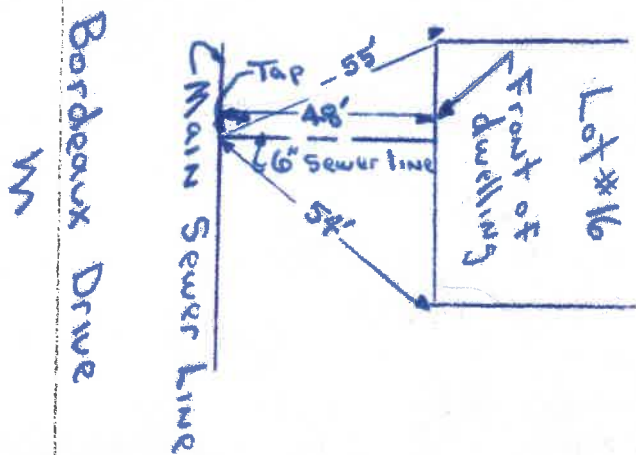 Bordeaux Drive
Main Sewer Line
Tap
55'
48'
6" Sewer line
54'
Front of
dwelling
Lot #16